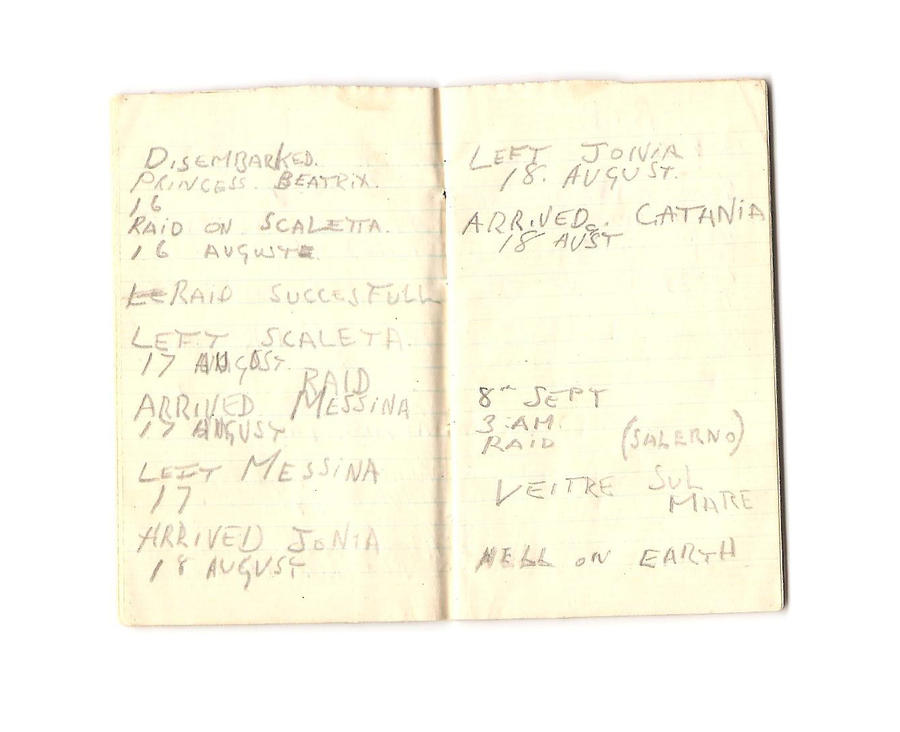 DISEMBARKED.
PRINCESS. BEATRIX.
16
RAID ON SCALETTA.
16 AUGUSTE
RAID SUCCESFULL
LEFT SCALETA.
17 AUGUST.
RAID
ARRIVED MESSINA
17 AUGUST
LEFT MESSINA
17
ARRIVED JONIA
18 AUGUST.
LEFT JONIA
18. AUGUST.
ARRIVED. CATANIA
18 AUST
8TH SEPT
3 AM.
RAID (SALERNO)
VEITRE SUL
MARE
HELL ON EARTH